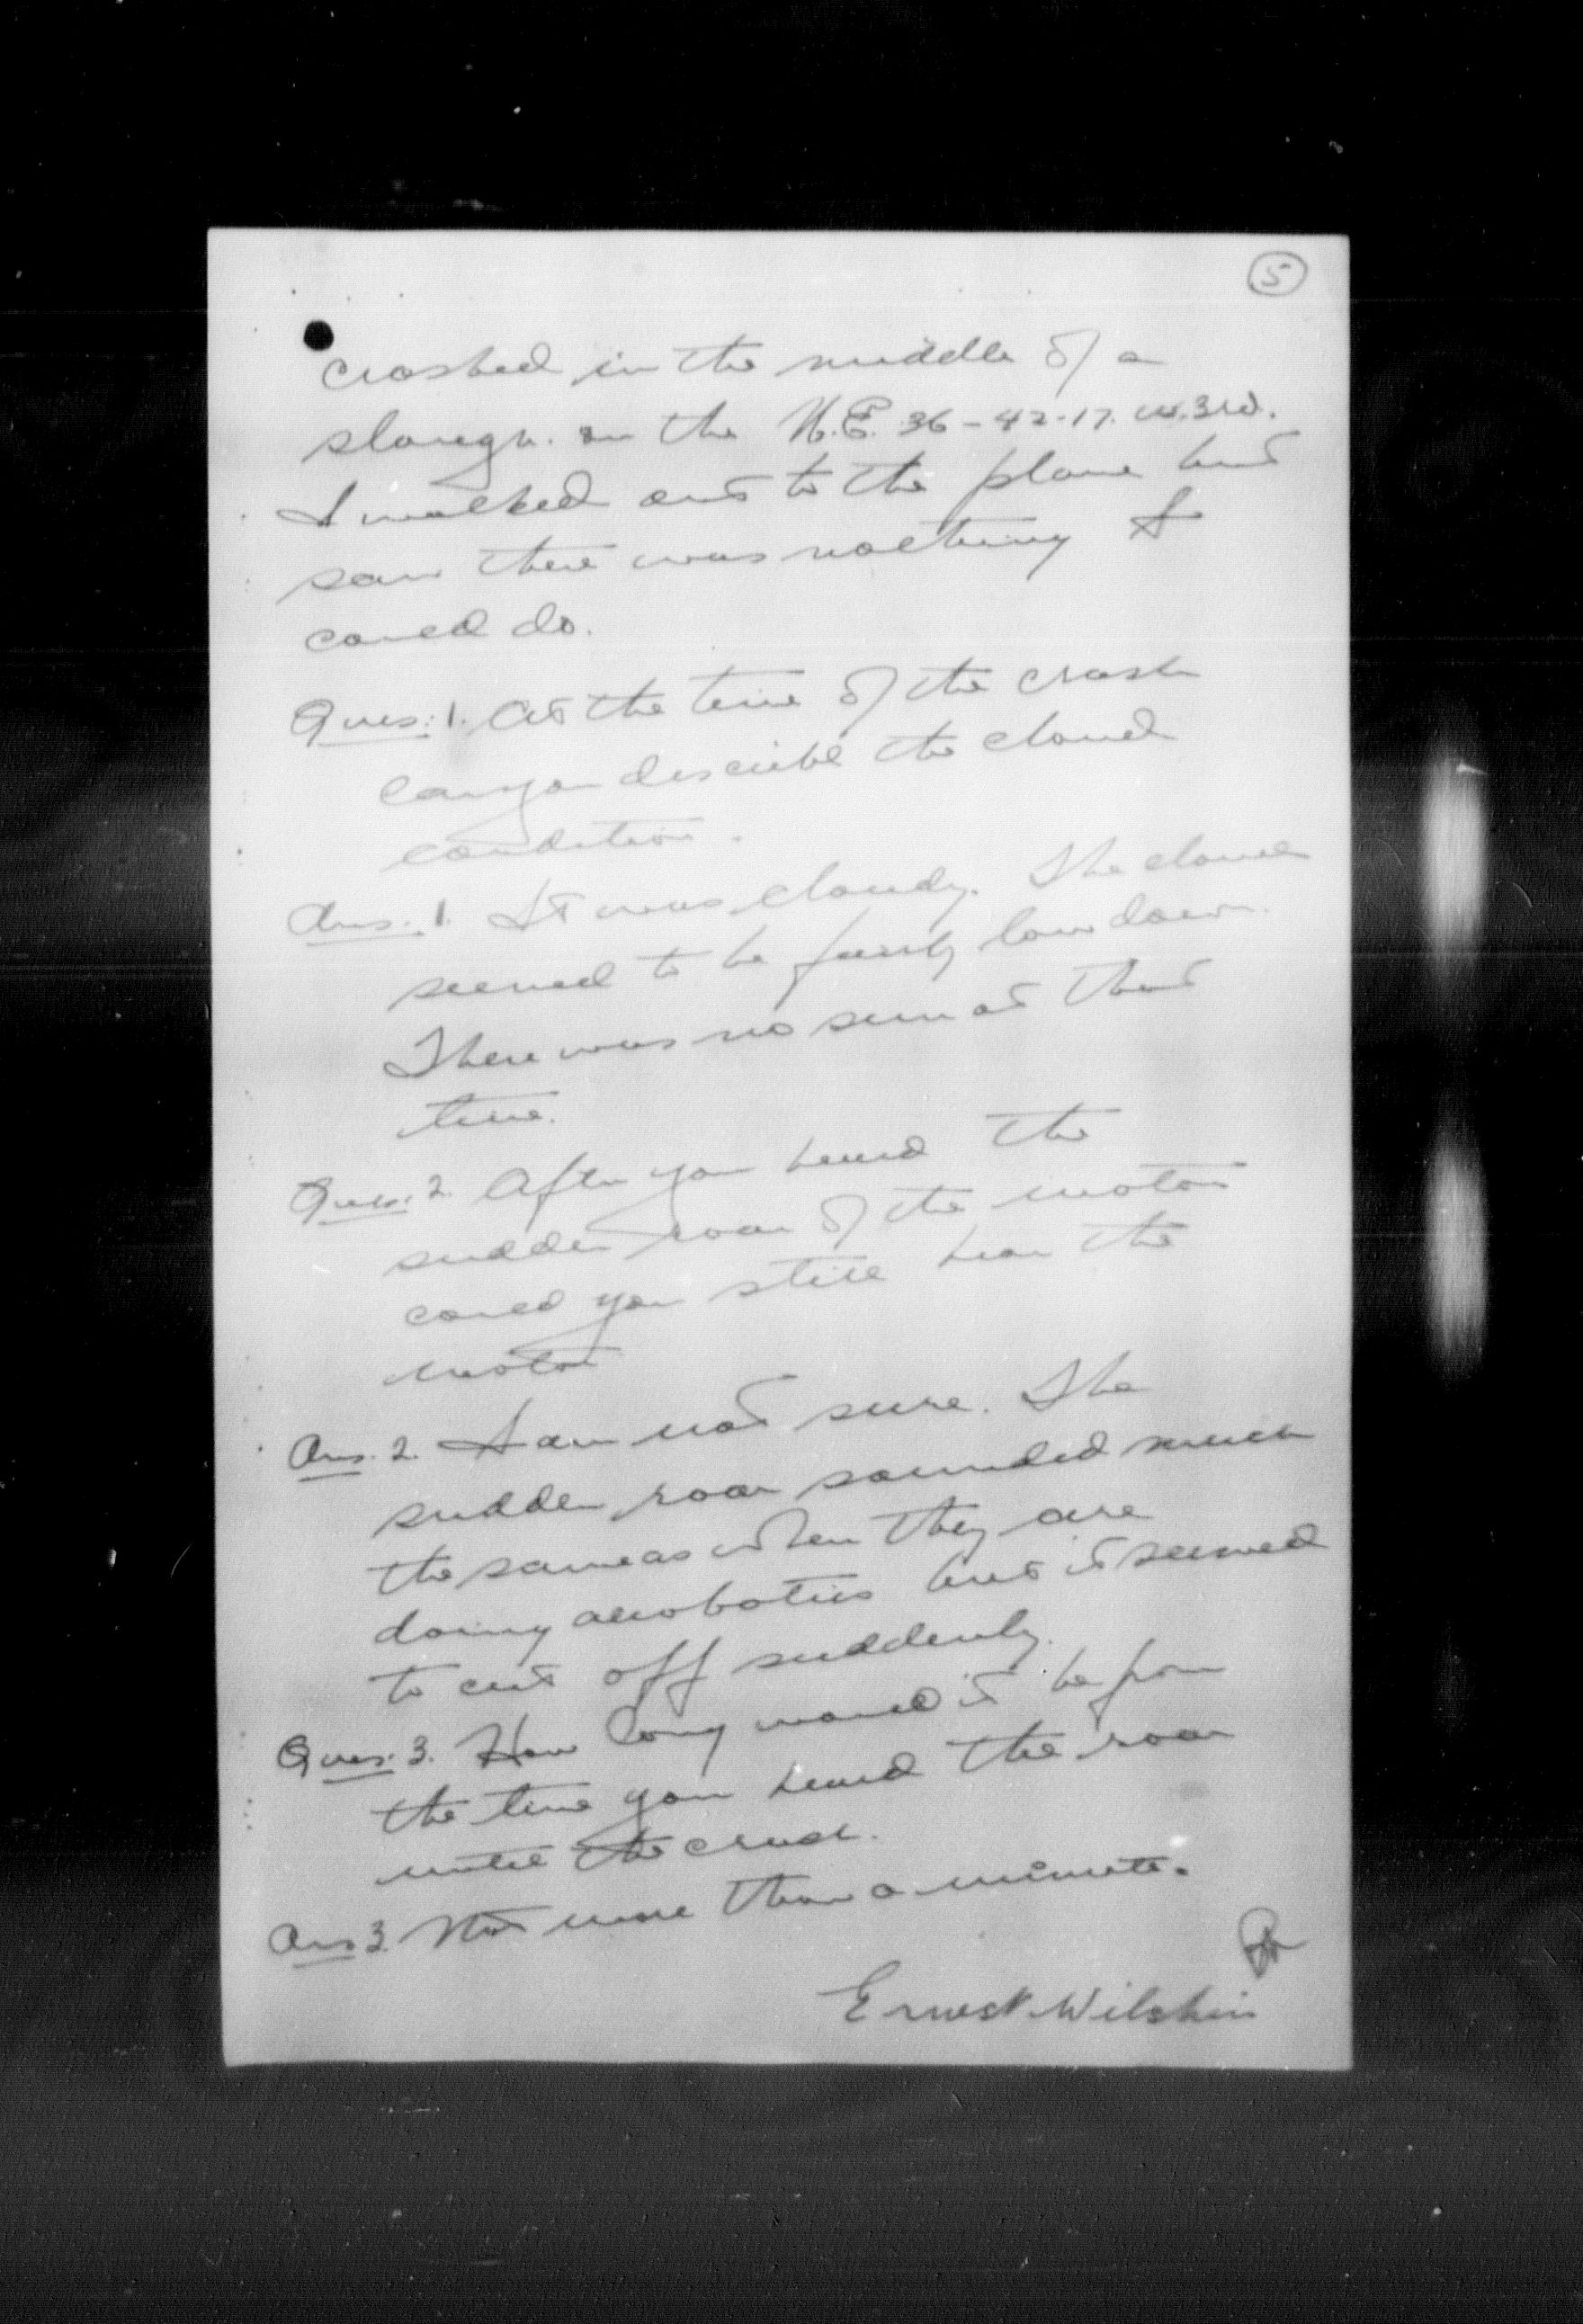 5
crashed in the middle of a
slough. on the N.E. 36-42-17. W.3rd.
I walked out to the plane but
saw there was nothing I
could do.
Ques: 1. At the time of the crash
can you describe the cloud
condition.
Ans. 1. It was cloudy. The cloud
seemed to be fairly low down.
There was no sun at that
time.
Ques: 2. After you heard the
sudden roar of the motor
could you still hear the
motor
Ans. 2. I am not sure. The
sudden roar sounded much
the same as when they are
doing aerobatics but it seemed
to cut off suddenly.
Ques: 3. How long would it be from
the time you heard the roar
until the crash.
Ans 3. Not more than a minute.
Ernest